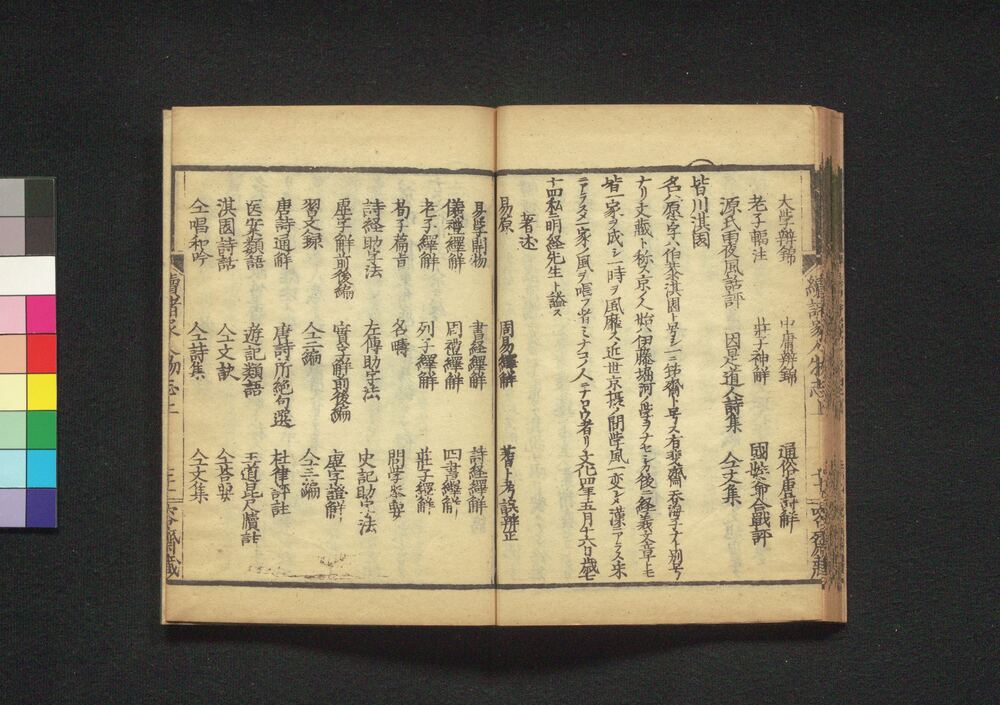 大学辨錦 中庸辨錦 通俗唐詩解
老子輻注 莊子神解 國姓爺合戰評
源氏雨夜風話評 因是道人詩集 仝文集
皆川淇園
名ハ原字ハ伯恭淇園ト号シ一ニ筇齋ト号ス有斐齋吞海子ナト別号
ナリ文藏ト称ス京ノ人始ハ伊藤堀河ノ学ヲナセシカ後ニ経義文章トモ
皆一家ヲ成シ一時ヲ風靡ス近世京摂ノ間学風一変シ漢ニアラス宋
ニアラス又一家ノ風ヲ唱フ者ミナコノ人ニナロウ者ナリ文化四年五月十六日歳七
十四私ニ明経先生ト謚ス
著述
易原 周易繹解 蓍卜考誤辨正
易学開物 書経繹解 詩経繹解
儀禮繹解 周禮繹解 四書繹解
老子繹解 列子繹解 莊子繹解
荀子篇旨 名疇 問学挙要
詩経助字法 左傳助字法 史記助字法
虚字解前後編 實字解前後編 虚字證解
習文録 仝二編 仝三編
唐詩通解 唐詩所絶句選 杜律評註
医案類語 遊記類語 王道昆尺牘註
淇園詩話 仝文訣 仝答要
仝唱和吟 仝詩集 仝文集
續諸家人物志上